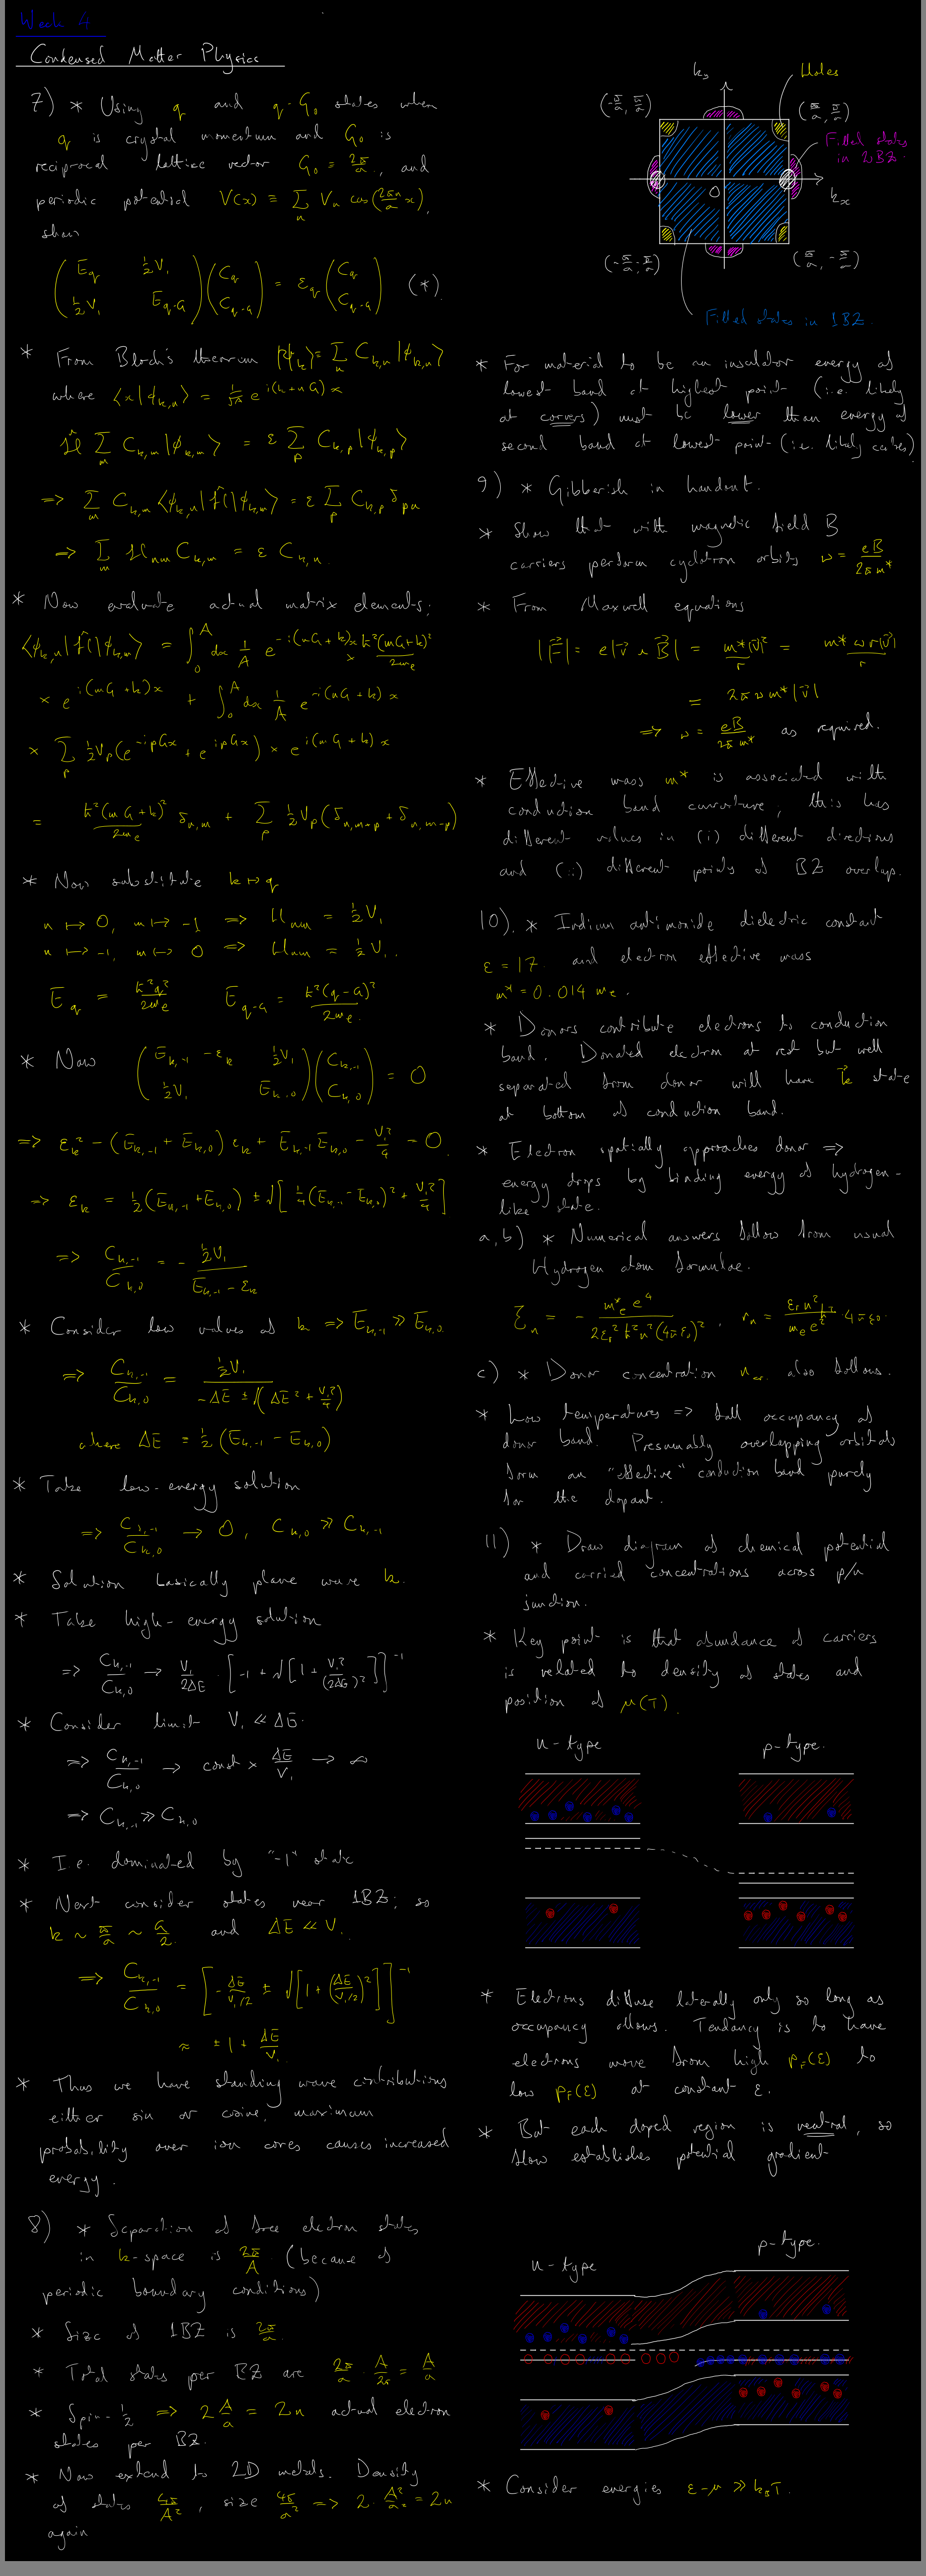 Week 4
Condensed Matter Physics
7) * Using q and q-G₀ states when
q is crystal momentum and G₀ is
reciprocal lattice vector G₀ = 2π/a, and
periodic potential V(x) = Σ_n V_n cos(2πn/a x),
show
(E_q ½V₁; ½V₁ E_{q-G})(C_q; C_{q-G}) = ε_q (C_q; C_{q-G}) (*)
* From Bloch's theorem |ψ_k⟩ = Σ_n C_{k,n} |φ_{k,n}⟩
where ⟨x|φ_{k,n}⟩ = 1/√A e^{i(k+nG)x}
Ĥ Σ_m C_{k,m} |φ_{k,m}⟩ = ε Σ_p C_{k,p} |φ_{k,p}⟩
=> Σ_m C_{k,m} ⟨φ_{k,n}|Ĥ|φ_{k,m}⟩ = ε Σ_p C_{k,p} δ_{pn}
=> Σ_m H_{nm} C_{k,m} = ε C_{k,n}.
* Now evaluate actual matrix elements;
⟨φ_{k,n}|Ĥ|φ_{k,m}⟩ = ∫₀^A dx 1/A e^{-i(nG+k)x} × ħ²(mG+k)²/2m_e
× e^{i(mG+k)x} + ∫₀^A dx 1/A e^{-i(nG+k)x}
× Σ_p ½V_p(e^{-ipGx} + e^{ipGx}) × e^{i(mG+k)x}
= ħ²(mG+k)²/2m_e δ_{n,m} + Σ_p ½V_p(δ_{n,m+p} + δ_{n,m-p})
* Now substitute k ↦ q
n ↦ 0, m ↦ -1 => H_{nm} = ½V₁
n ↦ -1, m ↦ 0 => H_{nm} = ½V₁.
E_q = ħ²q²/2m_e E_{q-G} = ħ²(q-G)²/2m_e
* Now (E_{k,-1} - ε_k ½V₁; ½V₁ E_{k,0})(C_{k,-1}; C_{k,0}) = 0
=> ε_k² - (E_{k,-1} + E_{k,0}) ε_k + E_{k,-1}E_{k,0} - V₁²/4 = 0.
=> ε_k = ½(E_{k,-1} + E_{k,0}) ± √[¼(E_{k,-1} - E_{k,0})² + V₁²/4]
=> C_{k,-1}/C_{k,0} = - ½V₁/(E_{k,-1} - ε_k)
* Consider low values of k => E_{k,-1} ≫ E_{k,0}.
=> C_{k,-1}/C_{k,0} = ½V₁/(-ΔE ± √(ΔE² + V₁²/4))
where ΔE = ½(E_{k,-1} - E_{k,0})
* Take low-energy solution
=> C_{k,-1}/C_{k,0} → 0, C_{k,0} ≫ C_{k,-1}
* Solution basically plane wave k.
* Take high-energy solution
=> C_{k,-1}/C_{k,0} → V₁/2ΔE · [-1 + √[1 + V₁²/(2ΔE)²]]⁻¹
* Consider limit V₁ ≪ ΔE.
=> C_{k,-1}/C_{k,0} → const × ΔE/V₁ → ∞
=> C_{k,-1} ≫ C_{k,0}
* I.e. dominated by "-1" state
* Next consider states near 1BZ; so
k ~ π/a ~ G/2. and ΔE ≪ V.
=> C_{k,-1}/C_{k,0} = [-ΔE/(V₁/2) ± √[1 + (ΔE/(V₁/2))²]]⁻¹
≈ ±1 + ΔE/V₁
* Thus we have standing wave contributions
either sin or cosine, maximum
probability over ion cores causes increased
energy.
8) * Separation of free electron states
in k-space is 2π/A. (because of
periodic boundary conditions)
* Size of 1BZ is 2π/a.
* Total states per BZ are 2π/a · A/2π = A/a
* Spin-½ => 2 A/a = 2n actual electron
states per BZ.
* Now extend to 2D metals. Density
of states 4π/A², size 4π/a² => 2·A²/a² = 2n
again
k_y
Holes
(-π/a, π/a)
(π/a, π/a)
Filled states
in 2BZ.
O
k_x
(-π/a, -π/a)
(π/a, -π/a)
Filled states in 1BZ.
* For material to be an insulator energy of
lowest band at highest point (i.e. likely
at corners) must be lower than energy of
second band at lowest point (i.e. likely
9) * Gibberish in handout.
* Show that with magnetic field B
carriers perform cyclotron orbits ν = eB/2πm*
* From Maxwell equations
|F⃗| = e|v⃗ ∧ B⃗| = m*|v⃗|²/r = m*ωr|v⃗|/r
= 2πνm*|v⃗|
=> ν = eB/2πm* as required.
* Effective mass m* is associated with
conduction band curvature; this has
different values in (i) different directions
and (ii) different points of BZ overlap.
10). * Indium antimonide dielectric constant
ε = 17. and electron effective mass
m* = 0.014 m_e.
* Donors contribute electrons to conduction
band. Donated electron at rest but well
separated from donor will have k⃗ state
at bottom of conduction band.
* Electron spatially approaches donor =>
energy drops by binding energy of hydrogen-
like state.
a,b) * Numerical answers follow from usual
Hydrogen atom formulae.
E_n = - m*_e e⁴/(2ε_r²ħ²n²(4πε₀)²), r_n = ε_r n²ħ²/(m_e e²) · 4πε₀.
c) * Donor concentration n_cr. also follows.
* Low temperatures => full occupancy of
donor band. Presumably overlapping orbitals
form an "effective" conduction band purely
for the dopant.
11) * Draw diagram of chemical potential
and carried concentrations across p/n
junction.
* Key point is that abundance of carriers
is related to density of states and
position of μ(T).
n-type
p-type.
* Electrons diffuse laterally only so long as
occupancy allows. Tendancy is to have
electrons move from high p_F(ε) to
low p_F(ε) at constant ε.
* But each doped region is neutral, so
flow establishes potential gradient
n-type
p-type.
* Consider energies ε-μ ≫ k_BT.